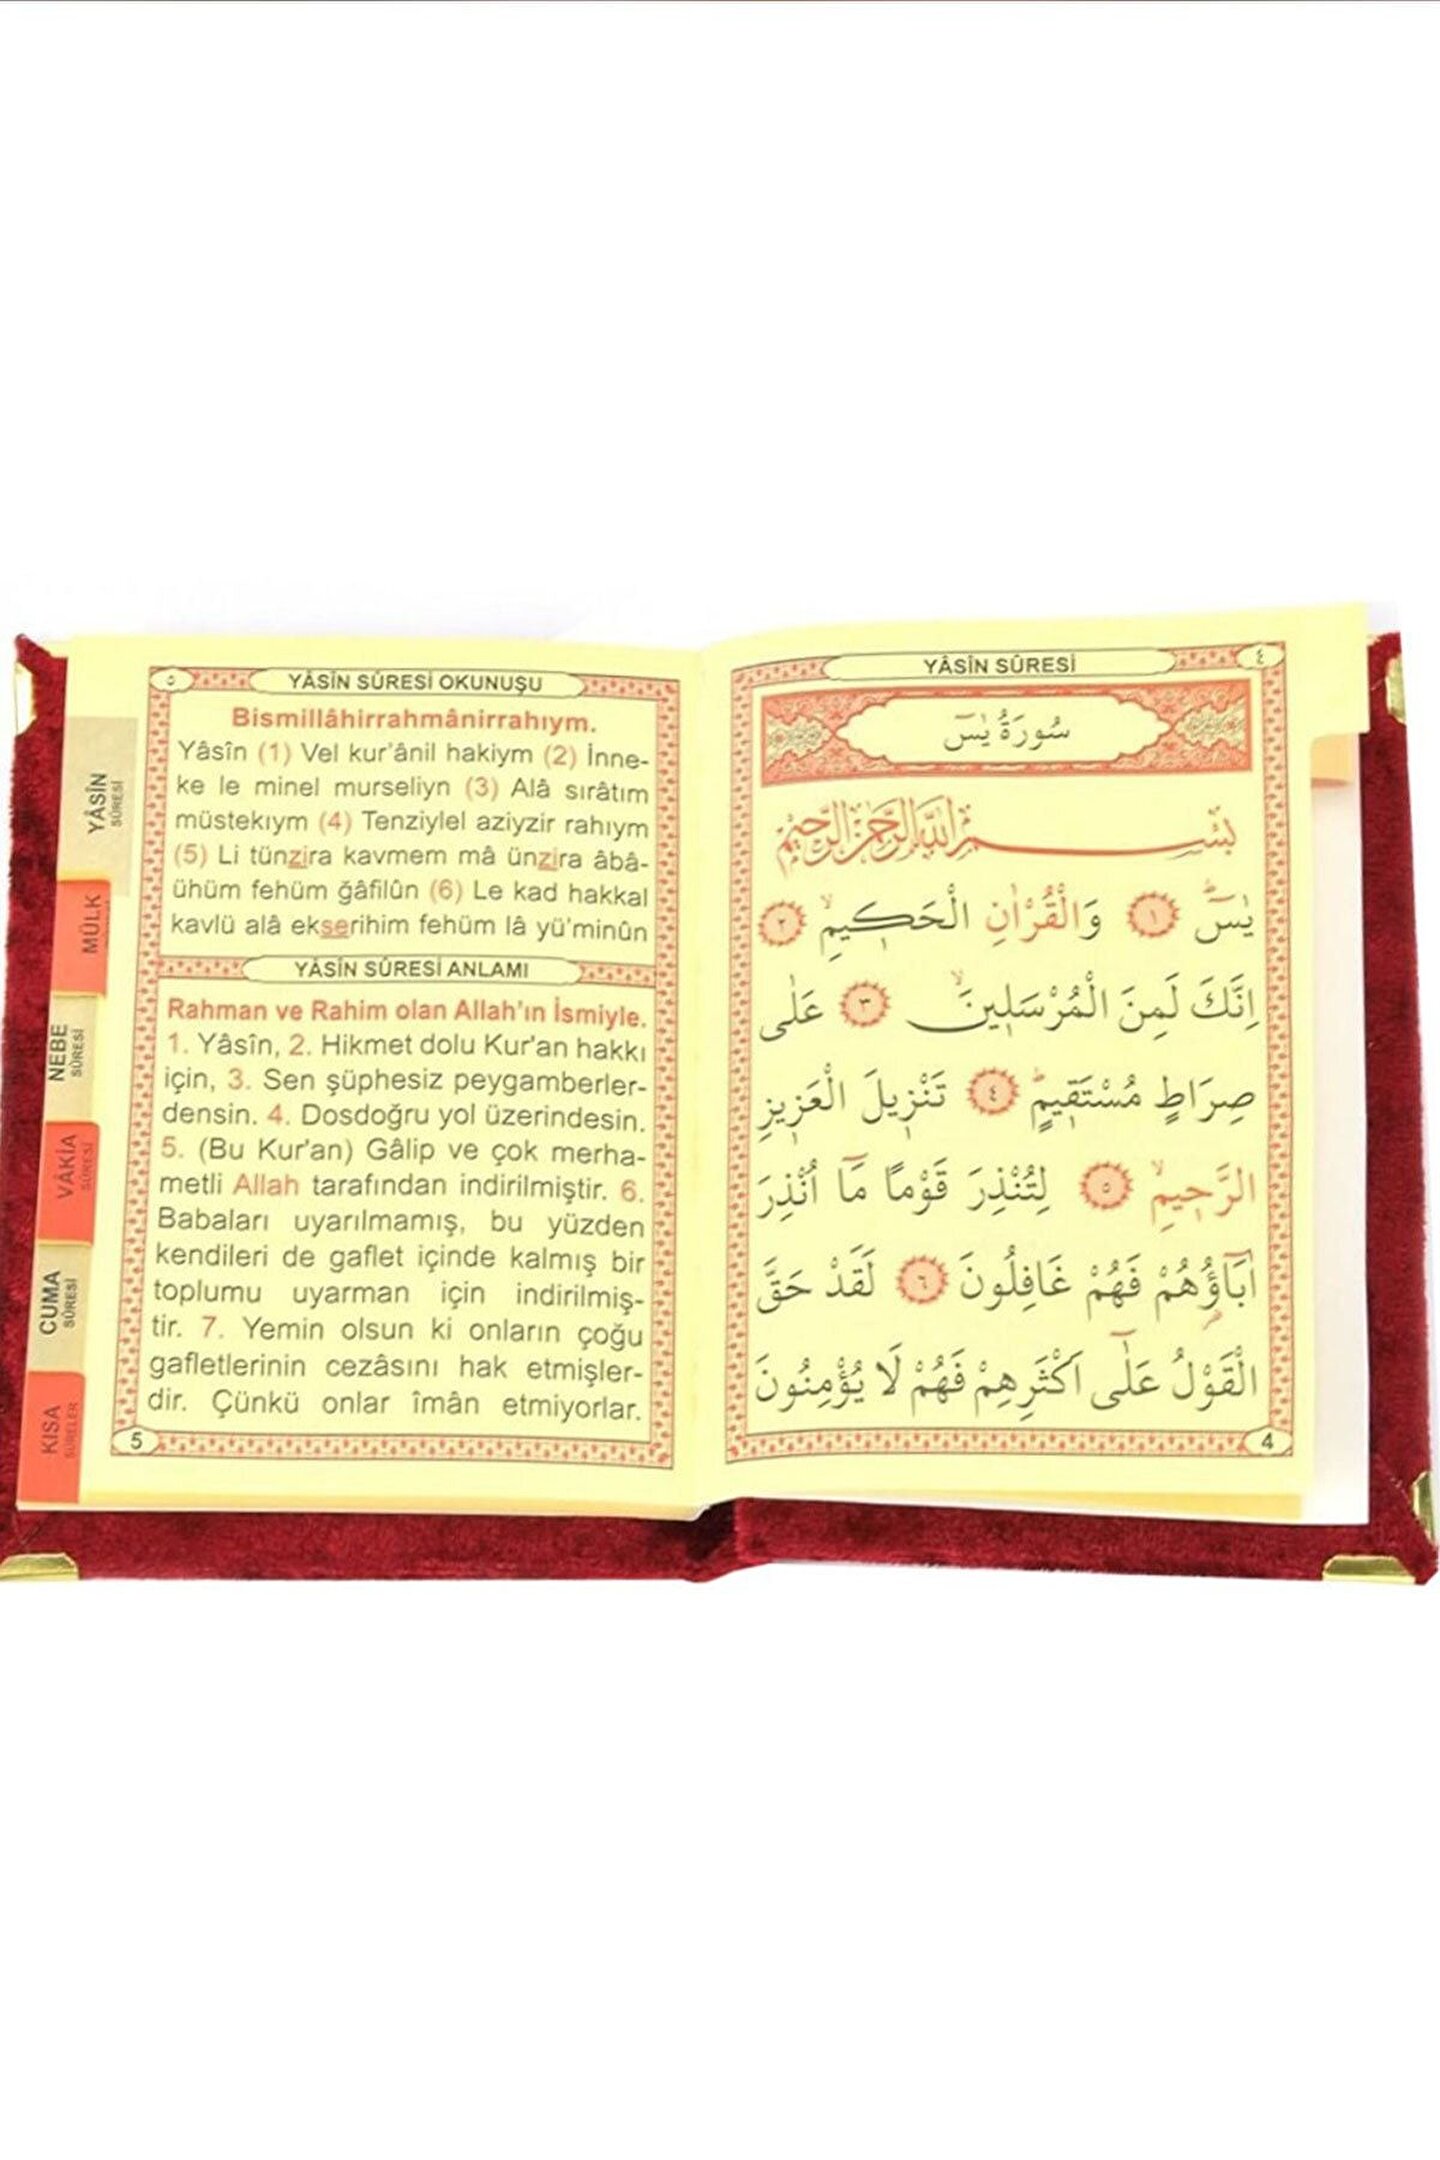 YÂSÎN SÛRESİ
٤
سُورَةُ يٰسٓ
بِسْمِ اللّٰهِ الرَّحْمٰنِ الرَّحِيمِ
يٰسٓ ۚ ﴿١﴾ وَالْقُرْاٰنِ الْحَكٖيمِۙ ﴿٢﴾
اِنَّكَ لَمِنَ الْمُرْسَلٖينَۙ ﴿٣﴾ عَلٰى
صِرَاطٍ مُسْتَقٖيمٍؕ ﴿٤﴾ تَنْزٖيلَ الْعَزٖيزِ
الرَّحٖيمِۙ ﴿٥﴾ لِتُنْذِرَ قَوْمًا مَٓا اُنْذِرَ
اٰبَٓاؤُ۬هُمْ فَهُمْ غَافِلُونَ ﴿٦﴾ لَقَدْ حَقَّ
الْقَوْلُ عَلٰٓى اَكْثَرِهِمْ فَهُمْ لَا يُؤْمِنُونَ
4
٥
YÂSÎN SÛRESİ OKUNUŞU
Bismillâhirrahmânirrahıym.
Yâsîn (1) Vel kur'ânil hakiym (2) İnne-
ke le minel murseliyn (3) Alâ sırâtım
müstekıym (4) Tenziylel aziyzir rahıym
(5) Li tünzira kavmem mâ ünzira âbâ-
ühüm fehüm ğâfilûn (6) Le kad hakkal
kavlü alâ ekserihim fehüm lâ yü'minûn
YÂSÎN SÛRESİ ANLAMI
Rahman ve Rahim olan Allah'ın İsmiyle.
1. Yâsîn, 2. Hikmet dolu Kur'an hakkı
için, 3. Sen şüphesiz peygamberler-
densin. 4. Dosdoğru yol üzerindesin.
5. (Bu Kur'an) Gâlip ve çok merha-
metli Allah tarafından indirilmiştir. 6.
Babaları uyarılmamış, bu yüzden
kendileri de gaflet içinde kalmış bir
toplumu uyarman için indirilmiş-
tir. 7. Yemin olsun ki onların çoğu
gafletlerinin cezâsını hak etmişler-
dir. Çünkü onlar îmân etmiyorlar.
5
YÂSÎN
SÛRESİ
MÜLK
NEBE
SÛRESİ
VÂKIA
SÛRESİ
CUMA
SÛRESİ
KISA
SÛRELER